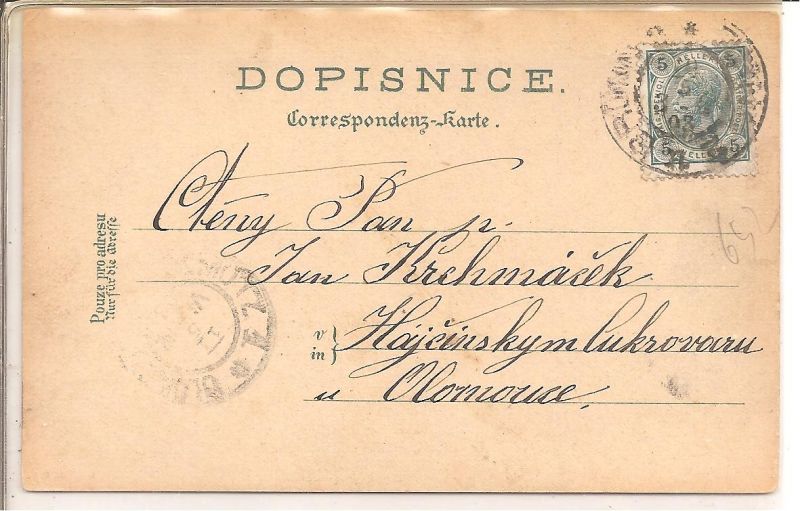 DOPISNICE.
Correspondenz-Karte.
Pouze pro adresu
Nur für die Adresse
Ctěny Pan p.
Jan Krchmáček
v
in } Hájčinskym Cukrovaru
u Olomouce,
5 5
HELLER
5 5